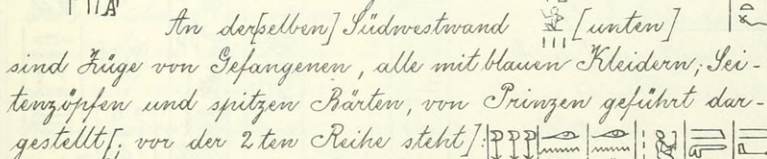 An der[selben] Südwestwand [unten]
sind Züge von Gefangenen, alle mit blauen Kleidern, Sei-
tenzöpfen und spitzen Bärten, von Prinzen geführt dar-
gestellt[; vor der 2ten Reihe steht]: